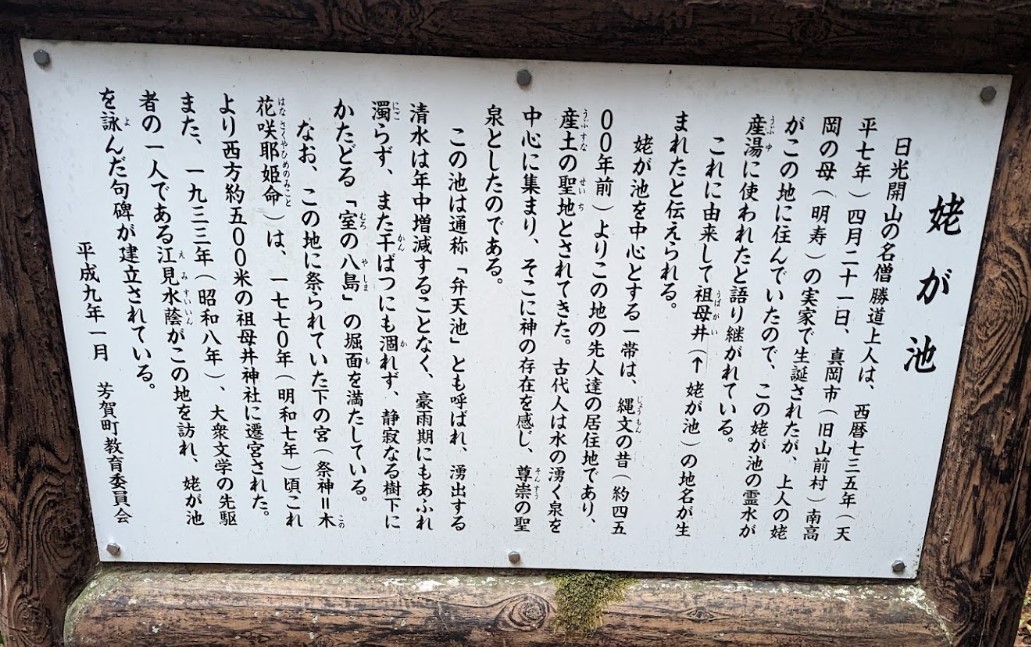 姥が池
日光開山の名僧勝道上人は、西暦七三五年（天
平七年）四月二十一日、真岡市（旧山前村）南高
岡の母（明寿）の実家で生誕されたが、上人の姥
がこの地に住んでいたので、この姥が池の霊水が
産湯に使われたと語り継がれている。
これに由来して祖母井（↑姥が池）の地名が生
まれたと伝えられる。
姥が池を中心とする一帯は、縄文の昔（約四五
〇〇年前）よりこの地の先人達の居住地であり、
産土の聖地とされてきた。古代人は水の湧く泉を
中心に集まり、そこに神の存在を感じ、尊崇の聖
泉としたのである。
この池は通称「弁天池」とも呼ばれ、湧出する
清水は年中増減することなく、豪雨期にもあふれ
濁らず、また干ばつにも涸れず、静寂なる樹下に
かたどる「室の八島」の堀面を満たしている。
なお、この地に祭られていた下の宮（祭神＝木
花咲耶姫命）は、一七七〇年（明和七年）頃これ
より西方約五〇〇米の祖母井神社に遷宮された。
また、一九三三年（昭和八年）、大衆文学の先駆
者の一人である江見水蔭がこの地を訪れ、姥が池
を詠んだ句碑が建立されている。
平成九年一月　芳賀町教育委員会